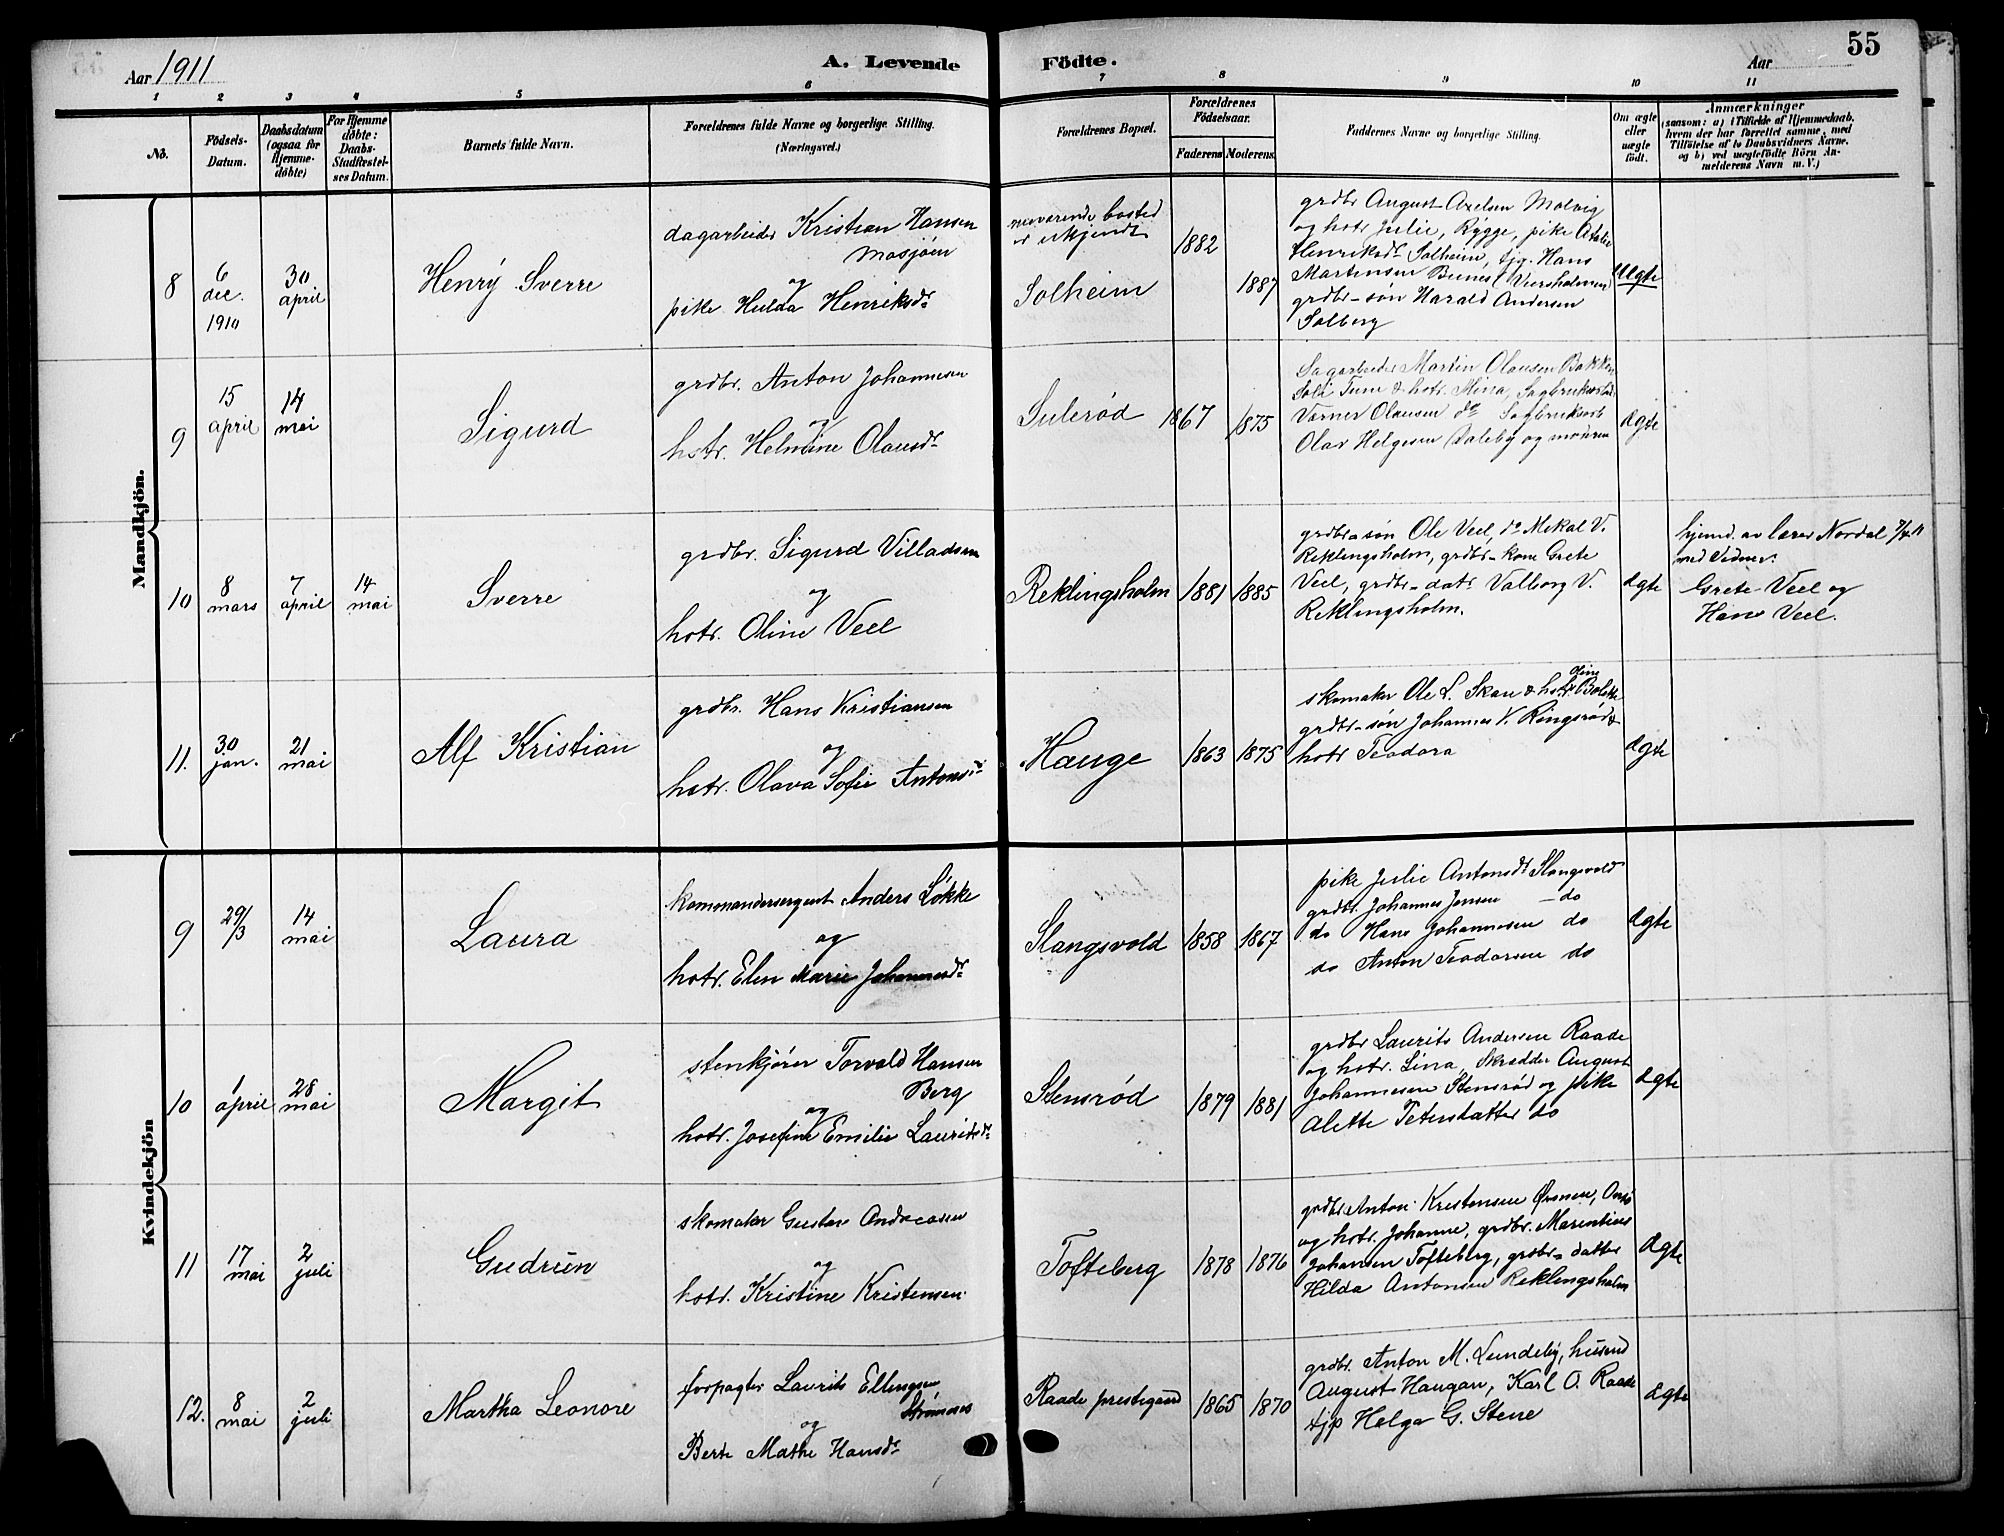 55
Aar 1911
A. Levende Födte.
Aar
1 2 3 4 5 6 7 8 9 10 11
No.
Födsels-
Datum.
Daabsdatum
(ogsaa for
Hjemme-
döbte)
For Hjemme
döbte:
Daabs-
Stadfæstel-
ses Datum.
Barnets fulde Navn.
Forældrenes fulde Navne og borgerlige Stilling.
(Næringsvei.)
Forældrenes Bopæl.
Forældrenes
Födselsaar.
Faderens Moderens.
Faddernes Navne og borgerlige Stilling.
Om ægte
eller
uægte
født.
Anmærkninger
(saasom: a) i Tilfælde af Hjemmedaab,
hvem der har forrettet samme, med
Tilföielse af to Daabsvidners Navne.
og b) ved uægtefödte Börn An-
melderens Navn m. V.)
Mandkjön.
8
6
dec.
1910
30
april
Henry Sverre
dagarbeider Kristian Hansen
Mosjøen
og
pike Hulda Henriksdr
nuværende bosted
er ukjendt
Solheim
1882
1887
grdbr August Axelsen Molvig
og hstr Julie, Rygge, pike
Henriksdr Solheim, tjg. Hans
Martinsen
grdbr-søn Harald Andersen
Solberg
Uegte
9
15
april
14
mai
Sigurd
grdbr. Anton Johannesen
og
hstr. Helmine Olausdr
Sulerød
1867
1875
Sagarbeider Martin Olausen Bakken
Tune & hstr. Mina,
Verner Olausen do
Olav Helgesen Daleby og moderen
egte
10
8
mars
7
april
14
mai
Sverre
grdbr. Sigurd Villadsen
og
hstr. Oline Veel
Reklingsholm
1881
1885
grdbr-søn Ole Veel, do Mikal V.
Reklingsholm, grdbr-kone Grete
Veel, grdbr-datr Valborg V.
Reklingsholm.
egte
hjemd. av lærer Nordal 7/4 11
med Vidner:
Grete Veel og
Hans Veel.
11.
30
jan.
21
mai
Alf Kristian
grdbr. Hans Kristiansen
og
hstr. Olava Sofie Antonsdr
Hauge
1863
1875
skomaker Ole L. Skau & hstr.
grdbr-søn Johannes V. Ringsrød &
hstr Teodora
egte
Kvindekjön
9
29/3
14
mai
Laura
kommandersergent Anders Løkke
og
hstr. Elen Marie Johannesdr
Slangsvold
1858
1867
pike Julie Antonsdr Slangsvold
grdbr. Johannes Jensen – do
do Hans Johannesen do
do Anton Teodorsen do
egte
10
1
april
28
mai
Margit
stenkjører Torvald Hansen
Berg
og
hstr. Josefine Emilie Lauritsdr
Stensrød
1879
1881
grdbr Laurits Andersen Raade
og hstr. Lina, Skrædder August
Johannesen Stensrød og pike
Alette Petersdatter do
egte
11
17
mai
2
juli
Gudrun
skomaker Gustav Andreasen
og
hstr. Kristine Kristensen
Tofteberg
1878
1876
grdbr. Anton Kristensen
og hstr. Johanne, grdbr. Marentius
Johansen Tofteberg, grdbr-datter
Hilda Antonsen Reklingsholm
egte
12.
8
mai
2
juli
Martha Leonore
forpagter Laurits Ellingsen
Strømnes
og
Berte Mathe Hansdr
Raade prestegaard
1865
1870
grdbr. Anton M. Lundeby, husmd
August Haugan, Karl O. Raade
tjp Helga G. Stene
egte